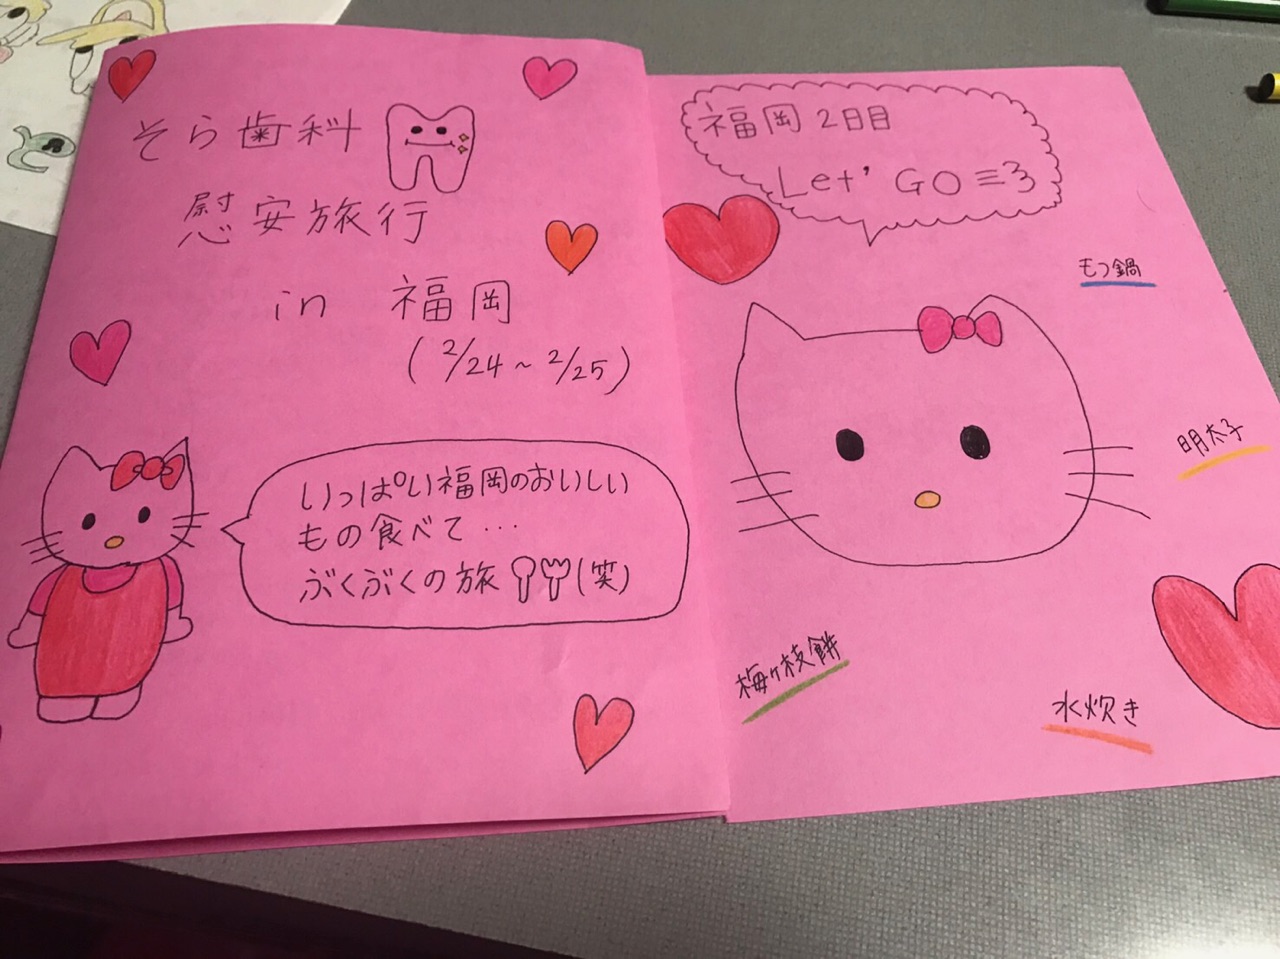 そら歯科
慰安旅行
in 福岡
(2/24~2/25)
いっぱい福岡のおいしい
もの食べて…
ぶくぶくの旅(笑)
福岡2日目
Let' GO≡3
もつ鍋
明太子
梅ヶ枝餅
水炊き